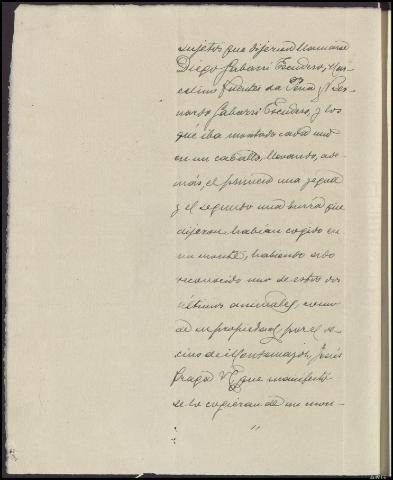 sujetos que dijeron llamarse
Diego Gabarri Escudero, Mar-
celino Fuentes da Pena y Ber-
nardo Gabarri Escudero, y los
que iba montado cada uno
en un caballo, llevando, ade-
más, el primero una yegua
y el segundo una burra que
dijeron habían cogido en
un monte, habiendo sido
reconocido uno de estos dos
últimos animales, como
de su propiedad, por el ve-
cino de Montamajor, Jesús
Fraga que manifestó
se lo cogieran de un mon-
"